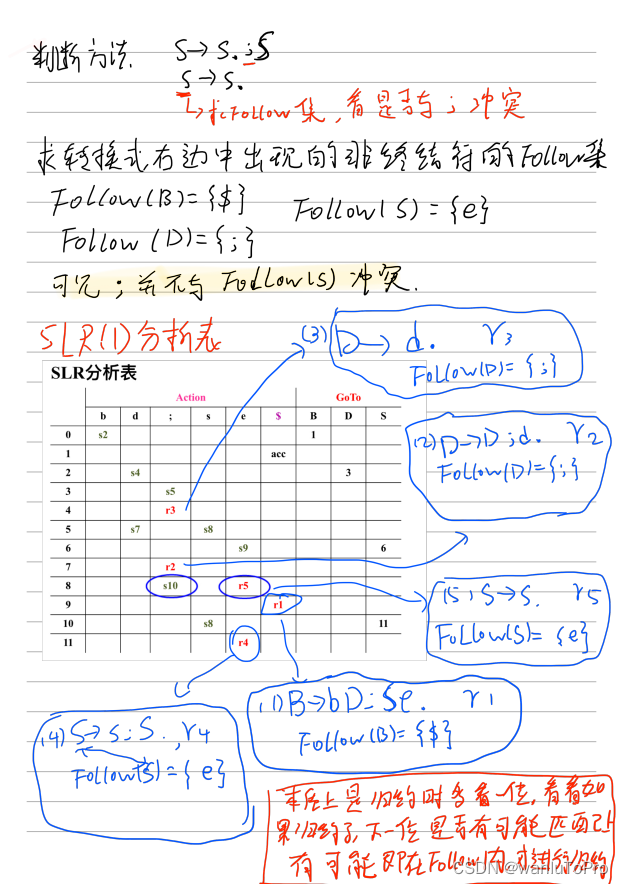 判断方法. S→s.;S
S→s.
↳求Follow集,看是否与;冲突
求转换式右边中出现的非终结符的Follow集
Follow(B)={$} Follow(S)={e}
Follow(D)={;}
可见;并不与Follow(S)冲突.
SLR(1)分析表
(3) D→d. r3
Follow(D)={;}
SLR分析表
Action GoTo
b d ; s e $ B D S
0 s2 1
1 acc
2 s4 3
3 s5
4 r3
5 s7 s8
6 s9 6
7 r2
8 s10 r5
9 r1
10 s8 11
11 r4
(2) D→D;d. r2
Follow(D)={;}
(5) S→s. r5
Follow(S)={e}
(1) B→bD;Se. r1
Follow(B)={$}
(4) S→s;S. r4
Follow(S)={e}
本质上是归约时多看一位,看看如
果归约了,下一位是否有可能匹配上
有可能即在Follow内才进行归约
CSDN @wanluToPro